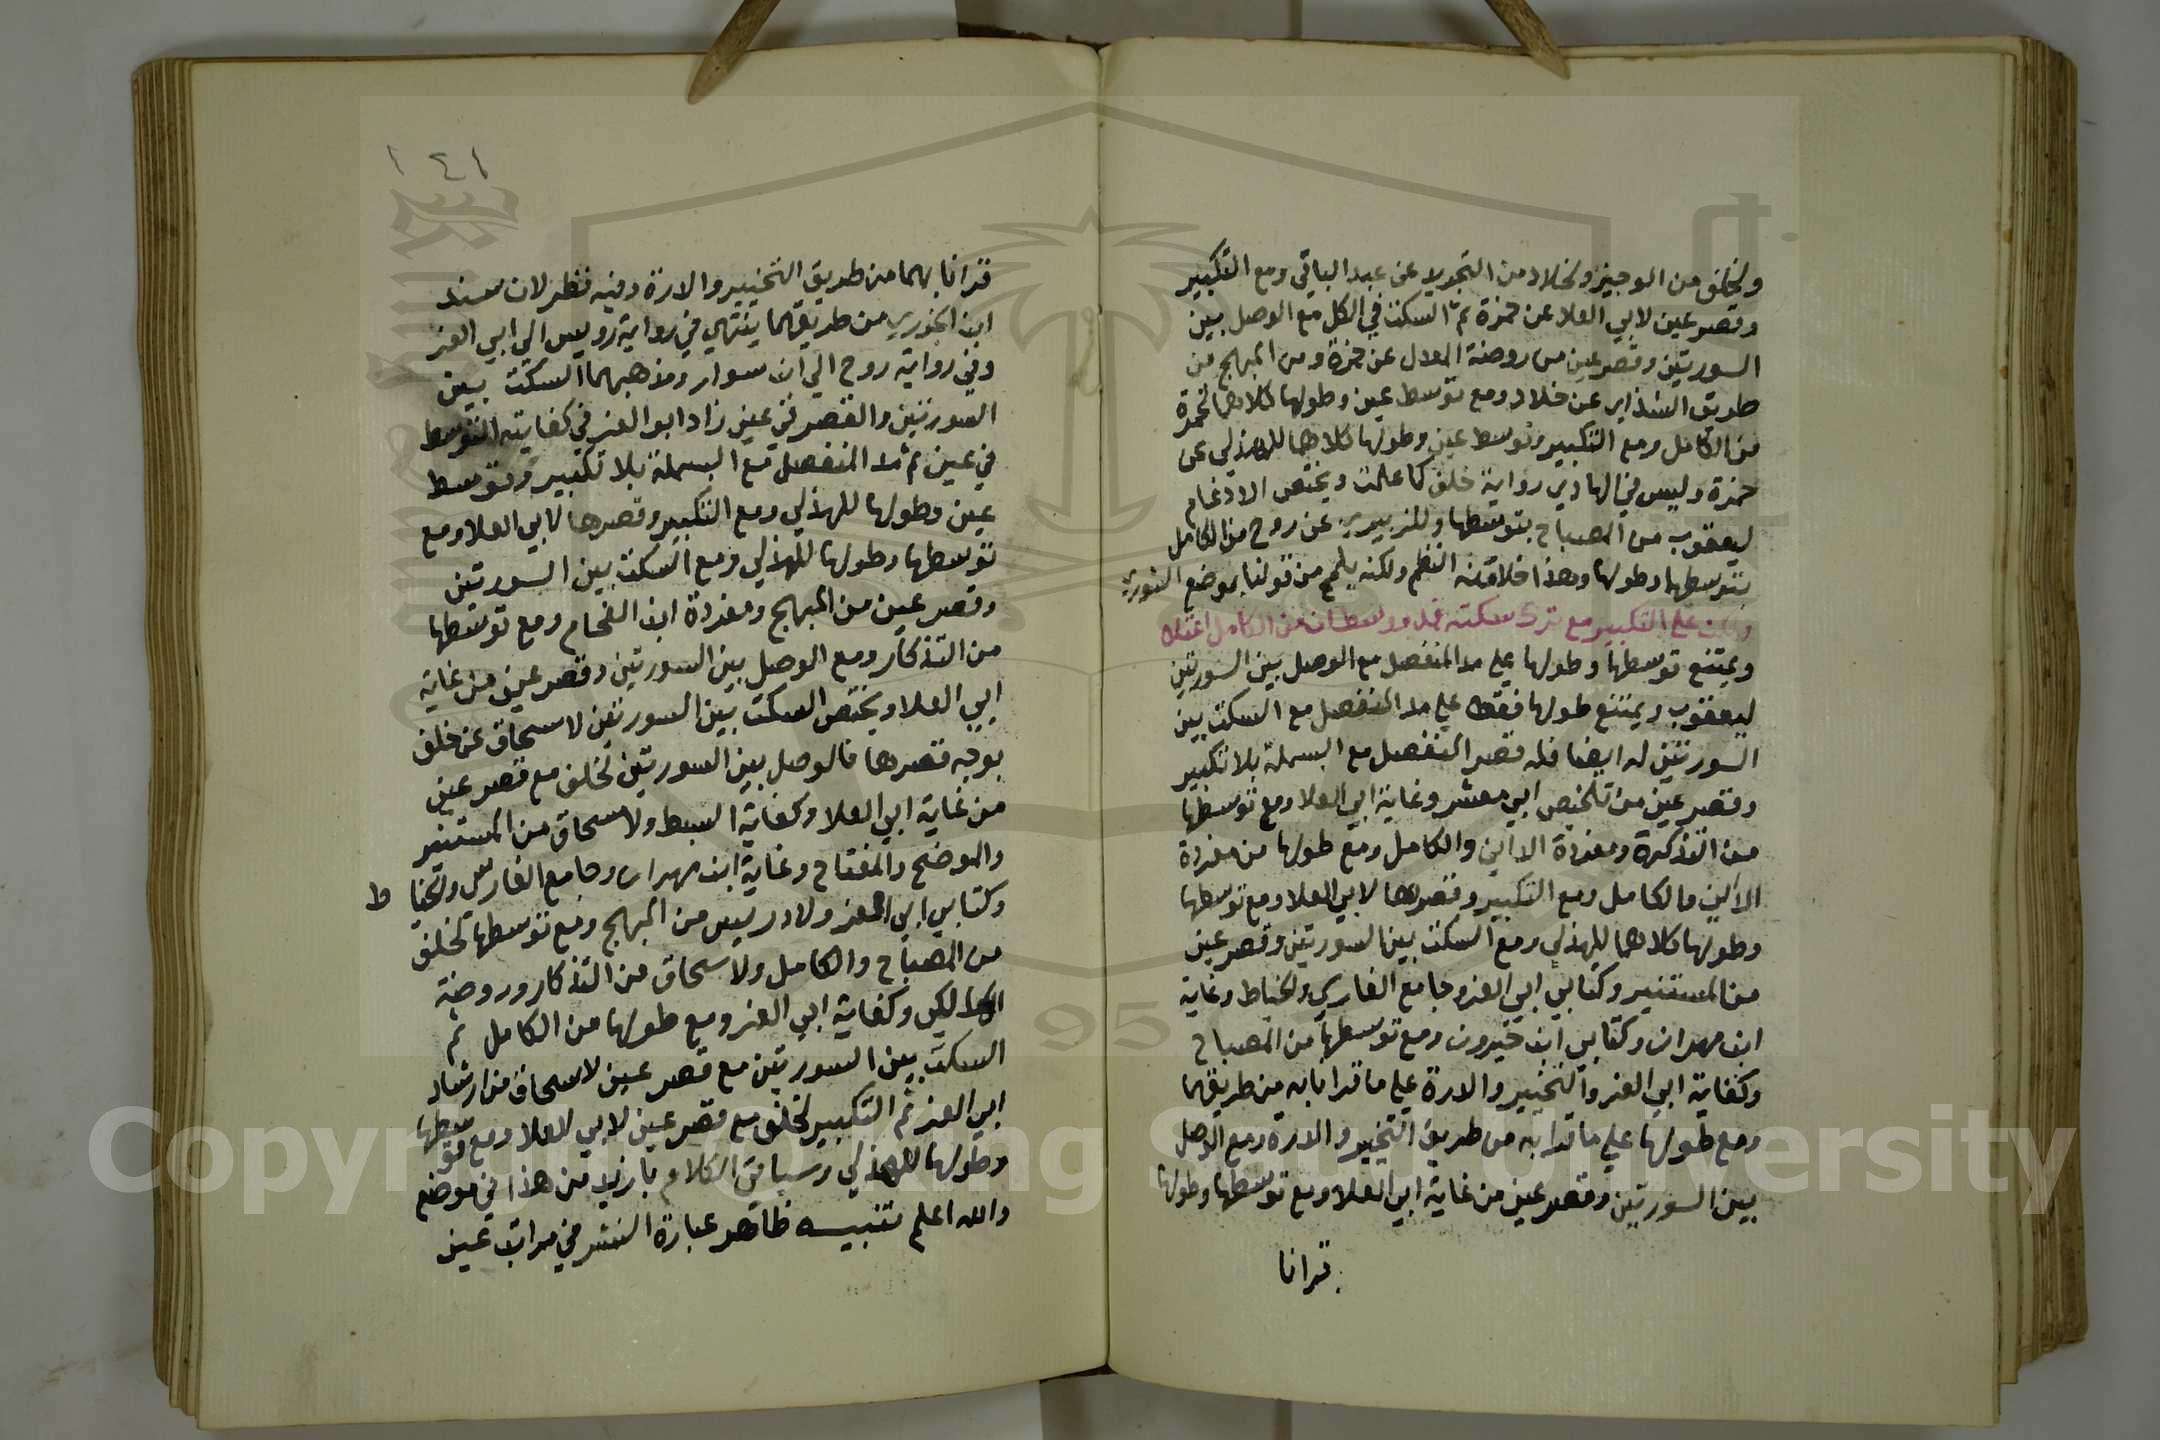 ولخلف من الوجيز ولخلاد من التجريد عن عبد الباقي ومع التكبير
وقصر عين لابي العلا عن حمزة ثم السكت في الكل مع الوصل بين
السورتين وقصر عين من روضة المعدل عن حمزة ومن المبهج من
طريق الشذاي عن خلاد ومع توسط عين وطولها كلاهما لحمزة
من الكامل ومع التكبير وتوسط عين وطولها كلاهما للهذلي عن
حمزة وليس في الهادي رواية خلف كما علمت ويختص الادغام
ليعقوب من المصباح بتوسطها وللزبيري عن روح من الكامل
بتوسطها وطولها وهذا خلافته النظم ولكنه يلمح من قولنا بموضع الشوري
علي التكبير مع ترك سكته فمد ووسطا من الكامل اعتلا
ويمتنع توسطها وطولها علي مد المنفصل مع الوصل بين السورتين
ليعقوب ويمتنع طولها فقط علي مد المنفصل مع السكت بين
السورتين له ايضا فله قصر المنفصل مع البسملة بلا تكبير
وقصر عين من تلخيص ابي معشر وغاية ابي العلا ومع توسطها
من التذكرة ومفردة الداني والكامل ومع طولها من مفردة
الداني والكامل ومع التكبير وقصرها لابي العلا ومع توسطها
وطولها كلاهما للهذلي ومع السكت بين السورتين وقصر عين
من المستنير وكتابي ابي العز وجامع الفارسي والخياط وغاية
ابن مهران وكتابي ابن خيرون ومع توسطها من المصباح
وكفاية ابي العز والتخيير والارة علي ما قرانا به من طريقهما
ومع طولها علي ما قرانا به من طريق التخيير والارة ومع الوصل
بين السورتين وقصر عين من غاية ابي العلا ومع توسطها وطولها
قرانا
١٤١
قرانا بهما من طريق التخيير والارة وفيه نظر لان سند
ابن الجزري من طريقهما ينتهي في رواية رويس الي ابي العز
وفي رواية روح الي ابن سوار ومذهبهما السكت بين
السورتين والقصر في عين زاد ابو العز في كفايته التوسط
في عين ثم مد المنفصل مع البسملة بلا تكبير وتوسط
عين وطولها للهذلي ومع التكبير وقصرها لابي العلا ومع
توسطها وطولها للهذلي ومع السكت بين السورتين
وقصر عين من المبهج ومفردة ابن الفحام ومع توسطها
من التذكار ومع الوصل بين السورتين وقصر عين من غاية
ابي العلا ويختص السكت بين السورتين لاسحاق عن خلف
بوجه قصرها فالوصل بين السورتين لخلف مع قصر عين
من غاية ابي العلا وكفاية السبط ولاسحاق من المستنير
والموضح والمفتاح وغاية ابن مهران وجامع الفارسي والخيا ط
وكتابي ابي العز ولادريس من المبهج ومع توسطها لخلف
من المصباح والكامل ولاسحاق من التذكار وروضة
المالكي وكفاية ابي العز ومع طولها من الكامل ثم
السكت بين السورتين مع قصر عين لاسحاق من ارشاد
ابي العز ثم التكبير لخلف مع قصر عين لابي العلا ومع توسطها
وطولها للهذلي وسياتي الكلام بازيد من هذا في موضع
والله اعلم تنبيه ظاهر عبارة النشر في مراتب عين
Copyright © King Saud University